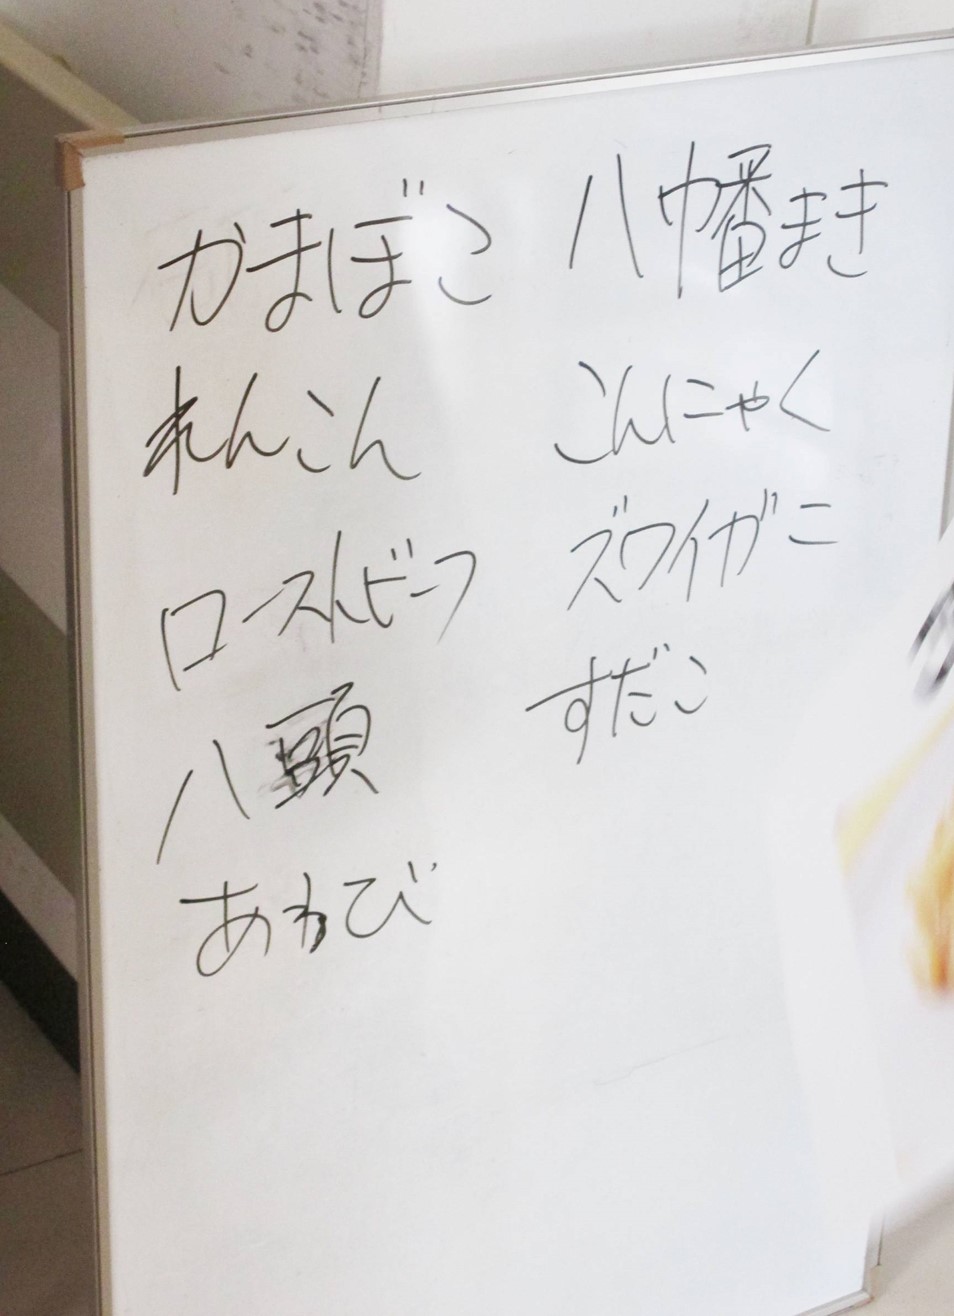 かまぼこ
れんこん
ローストビーフ
八頭
あわび
八幡まき
こんにゃく
ズワイガニ
すだこ